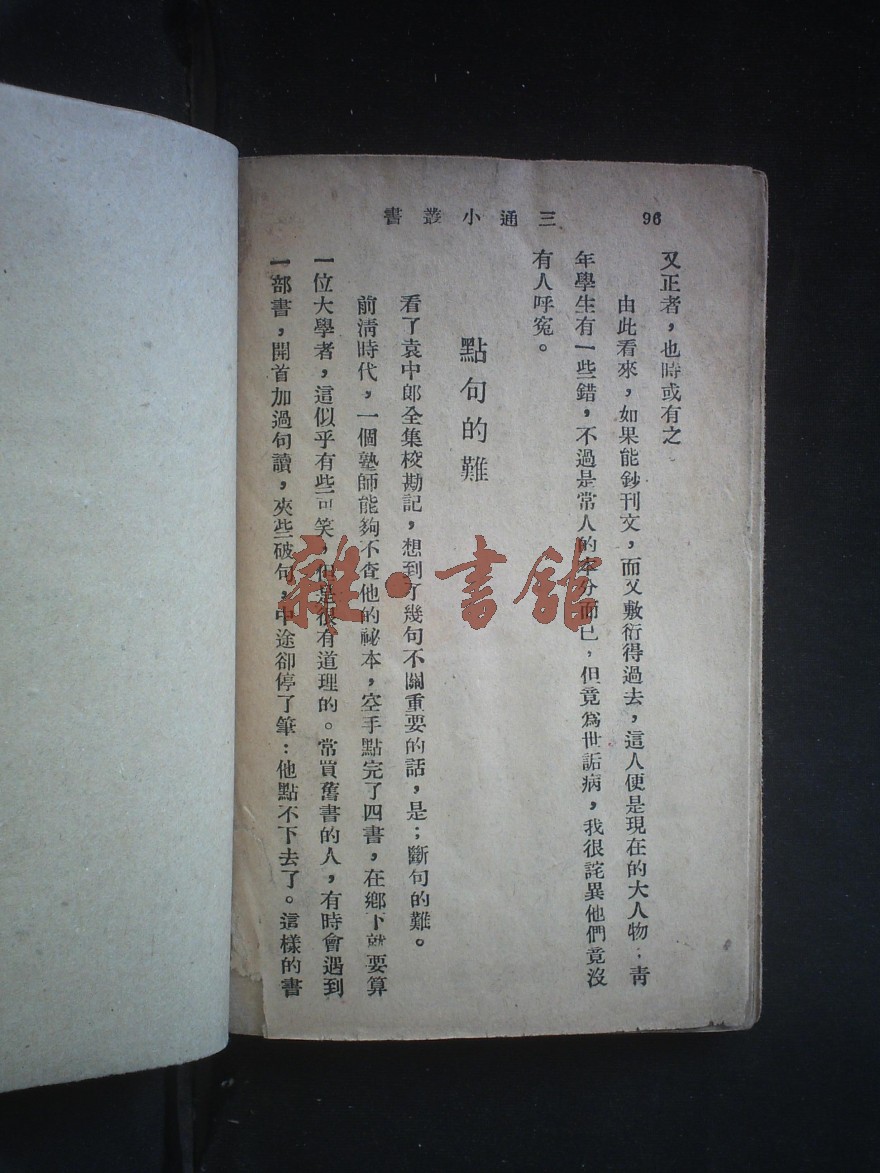 三通小叢書
96
又正者，也時或有之
由此看來，如果能鈔刊文，而又敷衍得過去，這人便是現在的大人物；靑
年學生有一些錯，不過是常人的本分而已，但竟爲世詬病，我很詫異他們竟沒
有人呼寃。
點句的難
看了袁中郎全集校勘記，想到了幾句不關重要的話，是；斷句的難。
前淸時代，一個塾師能夠不查他的祕本，空手點完了四書，在鄉下就要算
一位大學者，這似乎有些可笑，但是很有道理的。常買舊書的人，有時會遇到
一部書，開首加過句讀，夾些破句，中途卻停了筆：他點不下去了。這樣的書
雜·書館